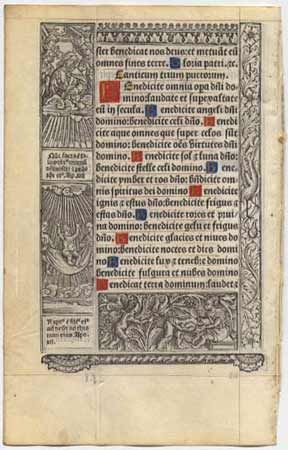 ster benedicat nos deus: et metuāt eū
omnes fines terre. Gloria patri. &c.
Canticum trium puerorum.
Benedicite omnia opa dñi do
mino: laudate et supexaltate
eū in secula. Benedicite angeli dñi
domino: benedicite celi dño. Benedi
cite aque omnes que super celos sūt
domino: bñdicite oēs virtutes dñi
domino. Benedicite sol & luna dño:
benedicite stelle celi domino. Bene
dicite ymber et ros dño: bñdicite om
nis spiritus dei domino. Benedicite
ignis & estus dño: benedicite frigus &
estas dño. Benedicite rores et pruina
domino: benedicite gelu et frigus
dño. Benedicite glacies et niues do
mino: benedicite noctes et dies domi
no. Benedicite lux & tenebre domino
benedicite fulgura et nubes domino
Benedicat terra dominum: laudet &